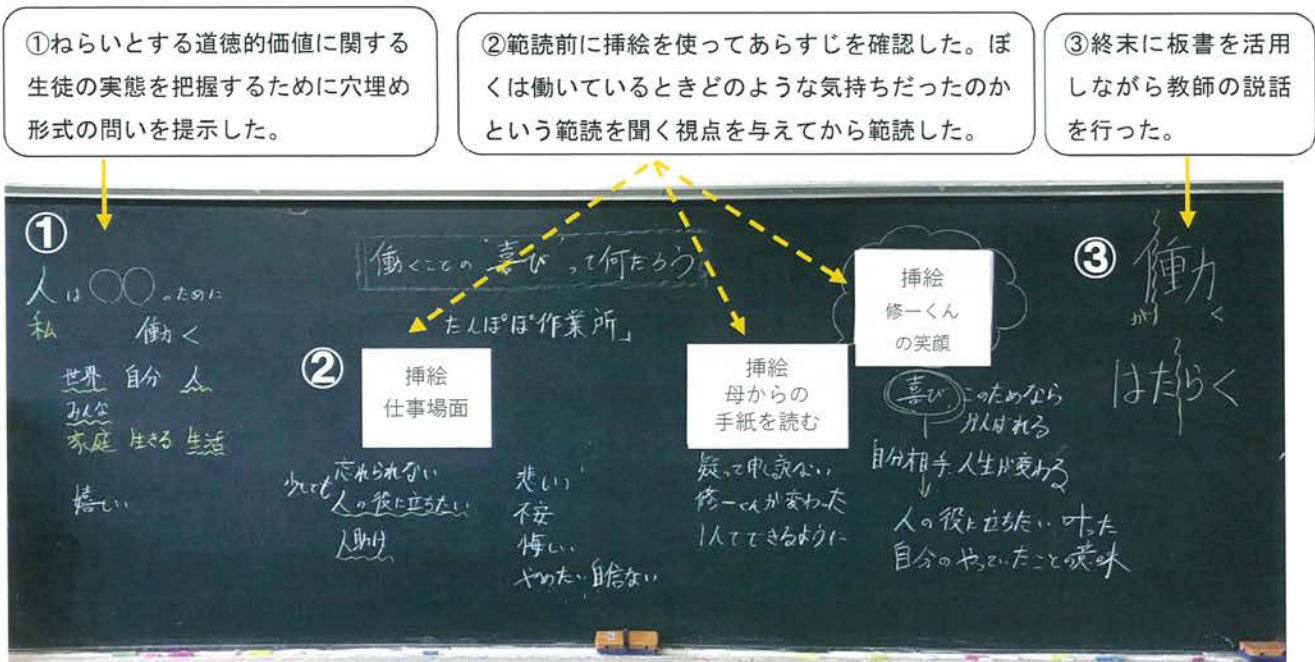 ①ねらいとする道徳的価値に関する
生徒の実態を把握するために穴埋め
形式の問いを提示した。
②範読前に挿絵を使ってあらすじを確認した。ぼ
くは働いているときどのような気持ちだったのか
という範読を聞く視点を与えてから範読した。
③終末に板書を活用
しながら教師の説話
を行った。
①
人は○○のために
私
働く
世界 自分 人
みんな
家庭 生きる 生活
嬉しい
働くことの"喜び"って何だろう
たんぽぽ作業所」
②
挿絵
仕事場面
忘れられない
少しでも
人の役に立ちたい
人助け
悲しい
不安
悔しい
やめたい 自信ない
挿絵
母からの
手紙を読む
疑って申し訳ない
修一くんが変わった
1人でできるように
挿絵
修一くん
の笑顔
喜び このためなら
がんばれる
自分 相手 人生が変わる
人の役に立ちたい 叶った
自分のやっていたことの意味
③
働
く
はたらく